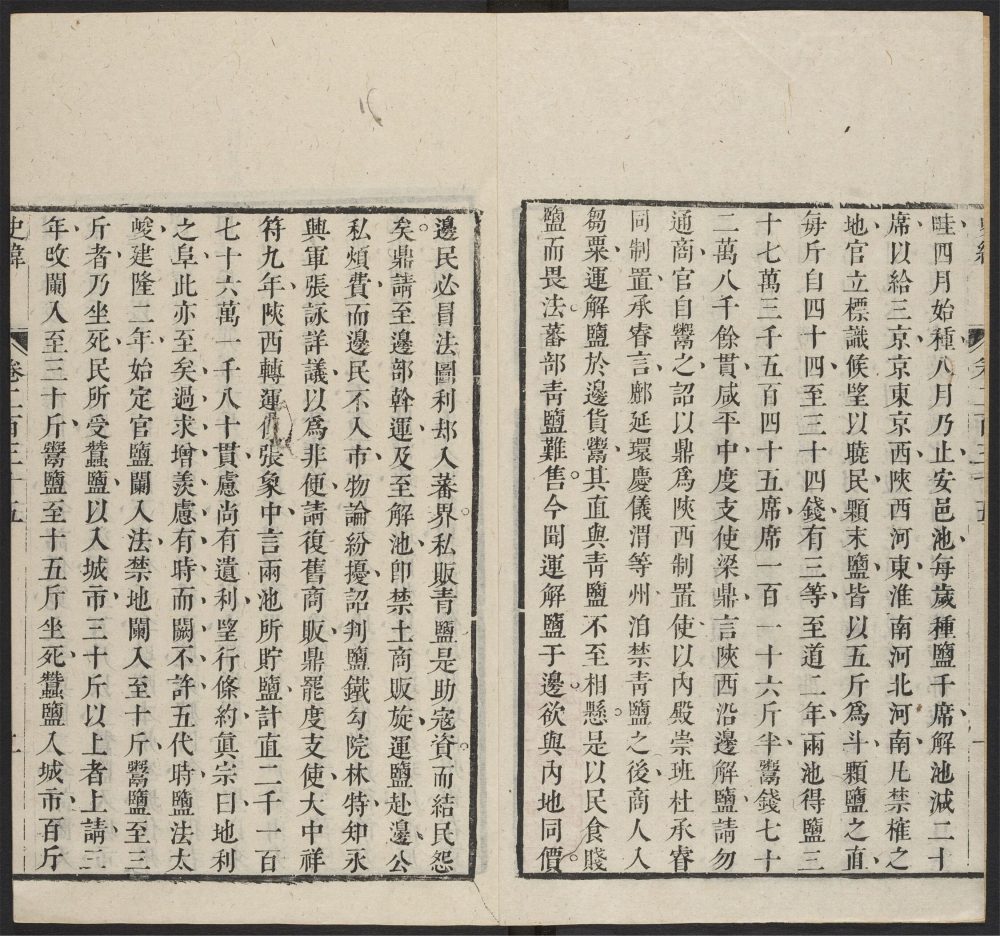 畦四月始種八月乃止安邑池每歲種鹽千席解池減二十
席以給三京京東京西陜西河東淮南河北河南凡禁榷之
地官立標識候望以曉民顆末鹽皆以五斤爲斗顆鹽之直
每斤自四十四至三十四錢有三等至道二年兩池得鹽三
十七萬三千五百四十五席席一百一十六斤半鬻錢七十
二萬八千餘貫咸平中度支使梁鼎言陜西沿邊解鹽請勿
通商官自鬻之詔以鼎爲陜西制置使以內殿崇班杜承睿
同制置承睿言鄜延環慶儀渭等州洎禁靑鹽之後商人入
芻粟運解鹽於邊貨鬻其直與靑鹽不至相懸是以民食賤
鹽而畏法蕃部靑鹽難售今聞運解鹽于邊欲與內地同價
邊民必冒法圖利却入蕃界私販青鹽是助寇資而結民怨
矣鼎請至邊部幹運及至解池卽禁土商販旋運鹽赴邊公
私煩費而邊民不入市物論紛擾詔判鹽鐵勾院林特知永
興軍張詠詳議以爲非便請復舊商販鼎罷度支使大中祥
符九年陜西轉運張象中言兩池所貯鹽計直二千一百
七十六萬一千八十貫慮尚有遺利望行條約眞宗曰地利
之阜此亦至矣過求增羨慮有時而闕不許五代時鹽法太
峻建隆二年始定官鹽闌入法禁地闌入至十斤鬻鹽至三
斤者乃坐死民所受蠶鹽以入城市三十斤以上者上請三
年攺闌入至三十斤鬻鹽至十五斤坐死蠶鹽入城市百斤
史緯 卷二百三十五 二